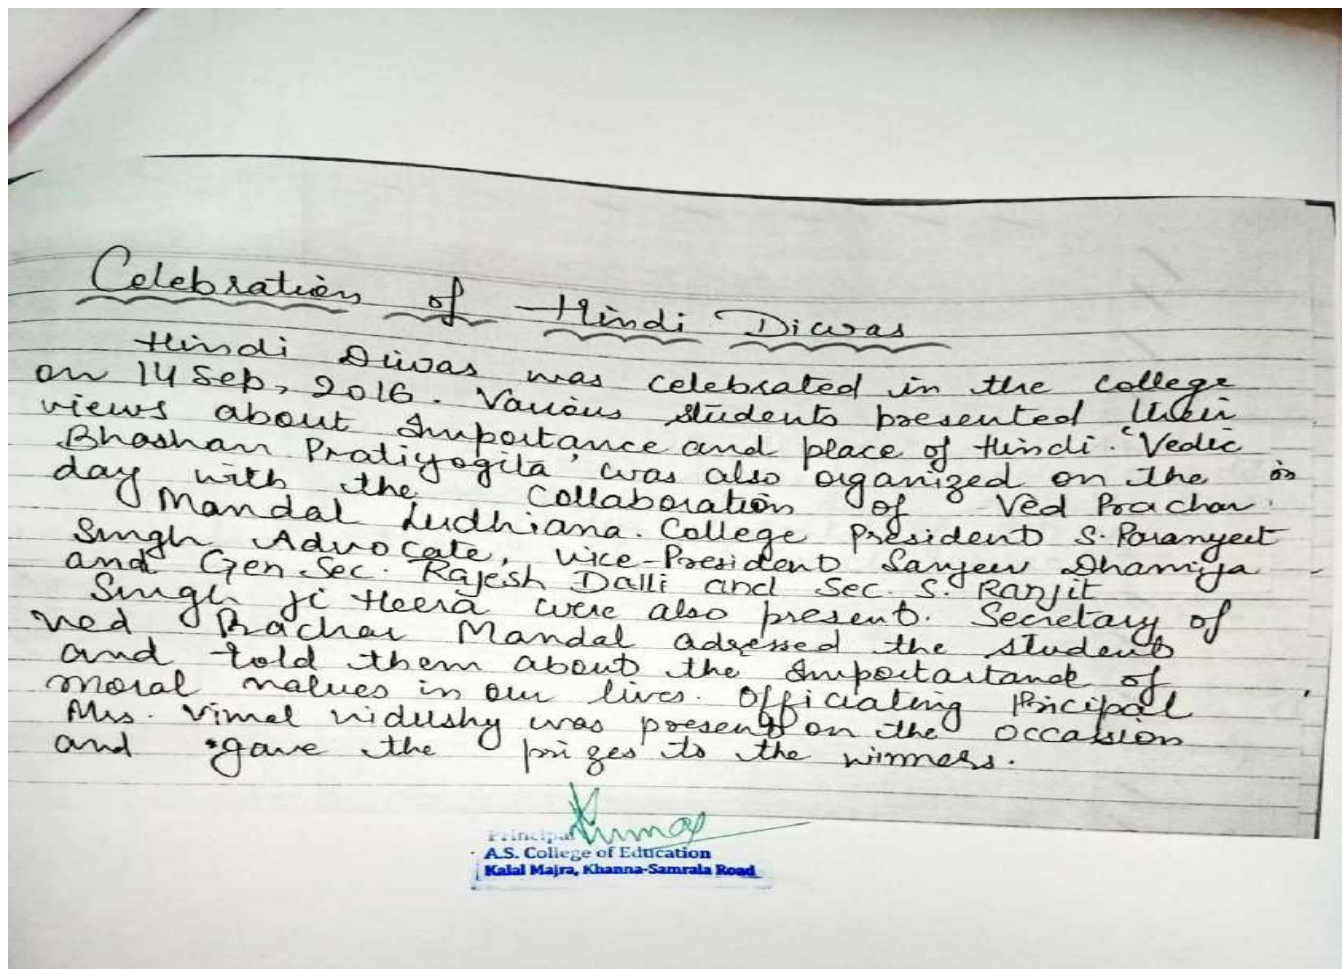 Celebration of Hindi Diwas
Hindi Diwas was celebrated in the college
on 14 Sep, 2016. Various students presented their
views about Importance and place of Hindi. 'Vedic
Bhashan Pratiyogita' was also organized on the
day with the Collaboration of Ved Prachar
Mandal Ludhiana. College President S. Paramjeet
Singh Advocate, vice-President Sanjeev Dhamija
and Gen Sec. Rajesh Dalli and Sec. S. Ranjit
Singh Ji Heera were also present. Secretary of
ved Prachar Mandal adressed the students
and told them about the Importartance of
moral values in our lives. Officiating Pricipal
Mrs. Vimel vidushy was present on the occassion
and gave the prizes to the winners.
Principal
A.S. College of Education
Kalal Majra, Khanna-Samrala Road